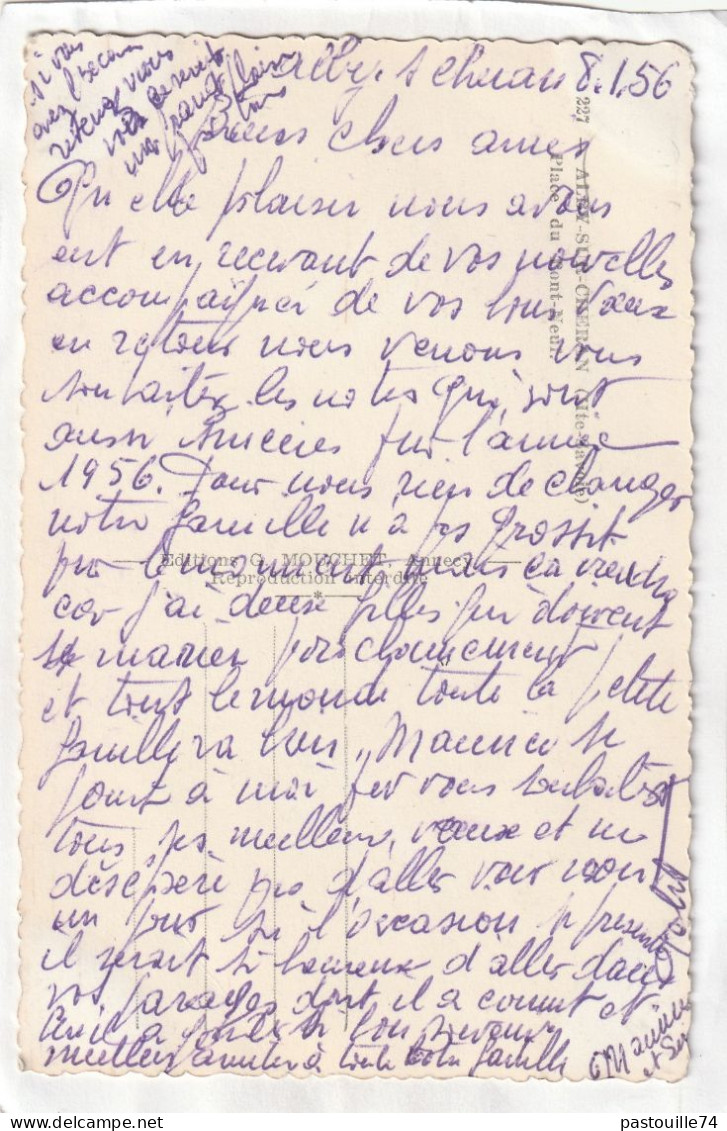 Alby s Cheran 8.1.56
Biens chers amis
Quelle plaisir nous avons
eut en recevant de vos nouvelles
accompaigné de vos bons vœux
en retour nous venons vous
souhaiter les notre qui sont
aussi sincères pour l'année
1956. Pour nous rien de changer
notre famille n'a pas grossit
pour le moment mais ça viendra
car j'ai deux filles qui doivent
se marier prochainement
et tout le monde toute la petite
famille va bien, Maurice se
joint à moi pour vous souhaiter
tous ses meilleurs vœux et ne
désespère pas d'aller vous voir
un jour si l'occasion se présente
il serait si heureux d'aller dans
vos parages dont il a connut et
qu'il a gardé si bon souvenir
meilleurs amitiés à toute votre famille
Maurice
et
si vous
avez besoin
retenez nous
227 ALBY-SUR-CHERAN (Hte-Savoie)
Place du Pont-Neuf
Editions G. MOUCHET, Annecy
Reproduction interdite
pastouille74